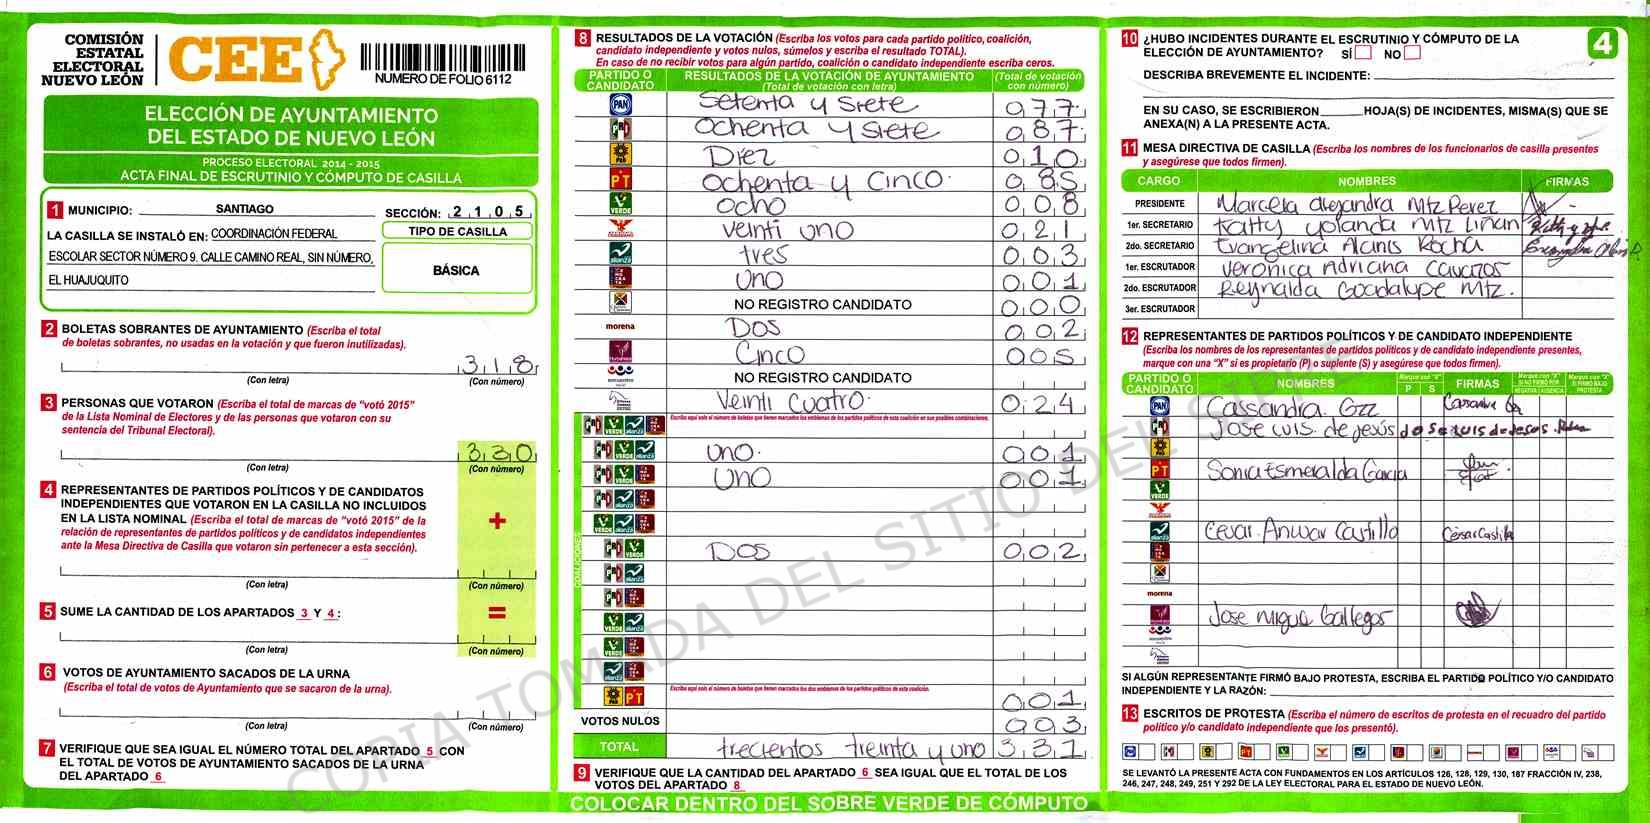 COMISIÓN
ESTATAL
ELECTORAL
NUEVO LEÓN
CEE
NUMERO DE FOLIO 6112
ELECCIÓN DE AYUNTAMIENTO
DEL ESTADO DE NUEVO LEÓN
PROCESO ELECTORAL 2014 - 2015
ACTA FINAL DE ESCRUTINIO Y CÓMPUTO DE CASILLA
1 MUNICIPIO: SANTIAGO SECCIÓN: 2 1 0 5
LA CASILLA SE INSTALÓ EN: COORDINACIÓN FEDERAL
ESCOLAR SECTOR NÚMERO 9. CALLE CAMINO REAL, SIN NÚMERO,
EL HUAJUQUITO
TIPO DE CASILLA
BÁSICA
2 BOLETAS SOBRANTES DE AYUNTAMIENTO (Escriba el total
de boletas sobrantes, no usadas en la votación y que fueron inutilizadas).
318
(Con letra) (Con número)
3 PERSONAS QUE VOTARON (Escriba el total de marcas de “votó 2015”
de la Lista Nominal de Electores y de las personas que votaron con su
sentencia del Tribunal Electoral).
330
(Con letra) (Con número)
4 REPRESENTANTES DE PARTIDOS POLÍTICOS Y DE CANDIDATOS
INDEPENDIENTES QUE VOTARON EN LA CASILLA NO INCLUIDOS
EN LA LISTA NOMINAL (Escriba el total de marcas de “votó 2015” de la
relación de representantes de partidos políticos y de candidatos independientes
ante la Mesa Directiva de Casilla que votaron sin pertenecer a esta sección).
+
(Con letra) (Con número)
5 SUME LA CANTIDAD DE LOS APARTADOS 3 Y 4:
=
(Con letra) (Con número)
6 VOTOS DE AYUNTAMIENTO SACADOS DE LA URNA
(Escriba el total de votos de Ayuntamiento que se sacaron de la urna).
(Con letra) (Con número)
7 VERIFIQUE QUE SEA IGUAL EL NÚMERO TOTAL DEL APARTADO 5 CON
EL TOTAL DE VOTOS DE AYUNTAMIENTO SACADOS DE LA URNA
DEL APARTADO 6
8 RESULTADOS DE LA VOTACIÓN (Escriba los votos para cada partido político, coalición,
candidato independiente y votos nulos, súmelos y escriba el resultado TOTAL).
En caso de no recibir votos para algún partido, coalición o candidato independiente escriba ceros.
PARTIDO O CANDIDATO
RESULTADOS DE LA VOTACIÓN DE AYUNTAMIENTO
(Total de votación con letra)
(Total de votación con número)
PAN Setenta y siete 077
PRD Ochenta y siete 087
PRD Diez 010
PT Ochenta y cinco 085
VERDE Ocho 008
Veinti uno 021
alianza tres 003
uno 001
NO REGISTRO CANDIDATO 000
morena Dos 002
Cinco 005
encuentro NO REGISTRO CANDIDATO
Veinti Cuatro 024
Escriba aquí solo el número de boletas que tienen marcados los emblemas de los partidos políticos de esta coalición en sus posibles combinaciones.
COALICIONES
VERDE alianza uno 001
Uno 001
VERDE Dos 002
PRD PT 001
Escriba aquí solo el número de boletas que tienen marcados los dos emblemas de los partidos políticos de esta coalición.
VOTOS NULOS 003
TOTAL trecientos treinta y uno 331
9 VERIFIQUE QUE LA CANTIDAD DEL APARTADO 6 SEA IGUAL QUE EL TOTAL DE LOS
VOTOS DEL APARTADO 8
COLOCAR DENTRO DEL SOBRE VERDE DE CÓMPUTO
10 ¿HUBO INCIDENTES DURANTE EL ESCRUTINIO Y CÓMPUTO DE LA
ELECCIÓN DE AYUNTAMIENTO? SÍ NO
4
DESCRIBA BREVEMENTE EL INCIDENTE:
EN SU CASO, SE ESCRIBIERON HOJA(S) DE INCIDENTES, MISMA(S) QUE SE
ANEXA(N) A LA PRESENTE ACTA.
11 MESA DIRECTIVA DE CASILLA (Escriba los nombres de los funcionarios de casilla presentes
y asegúrese que todos firmen).
CARGO NOMBRES FIRMAS
PRESIDENTE Marcela Alejandra Mtz Perez
1er. SECRETARIO Katty Yolanda Mtz Liñan
2do. SECRETARIO Evangelina Alanis Rocha
1er. ESCRUTADOR Veronica Adriana Cavazos
2do. ESCRUTADOR Reynalda Guadalupe Mtz.
3er. ESCRUTADOR
12 REPRESENTANTES DE PARTIDOS POLÍTICOS Y DE CANDIDATO INDEPENDIENTE
(Escriba los nombres de los representantes de partidos políticos y de candidato independiente presentes,
marque con una “X” si es propietario (P) o suplente (S) y asegúrese que todos firmen).
PARTIDO O CANDIDATO NOMBRES P S FIRMAS
Marque con "X"
Marque con "X" SI NO FIRMÓ POR NEGATIVA O AUSENCIA
Marque con "X" SI FIRMÓ BAJO PROTESTA
PAN Cassandra Gzz
Jose Luis de jesús
PT Sonia Esmeralda Garcia
VERDE
alianza Cesar Anwar Castillo Cesar Castillo
morena
Jose Miguel Gallegos
encuentro
SI ALGÚN REPRESENTANTE FIRMÓ BAJO PROTESTA, ESCRIBA EL PARTIDO POLÍTICO Y/O CANDIDATO
INDEPENDIENTE Y LA RAZÓN:
13 ESCRITOS DE PROTESTA (Escriba el número de escritos de protesta en el recuadro del partido
político y/o candidato independiente que los presentó).
SE LEVANTÓ LA PRESENTE ACTA CON FUNDAMENTOS EN LOS ARTÍCULOS 126, 128, 129, 130, 187 FRACCIÓN IV, 238,
246, 247, 248, 249, 251 Y 292 DE LA LEY ELECTORAL PARA EL ESTADO DE NUEVO LEÓN.
COPIA TOMADA DEL SITIO DEL SIPRE